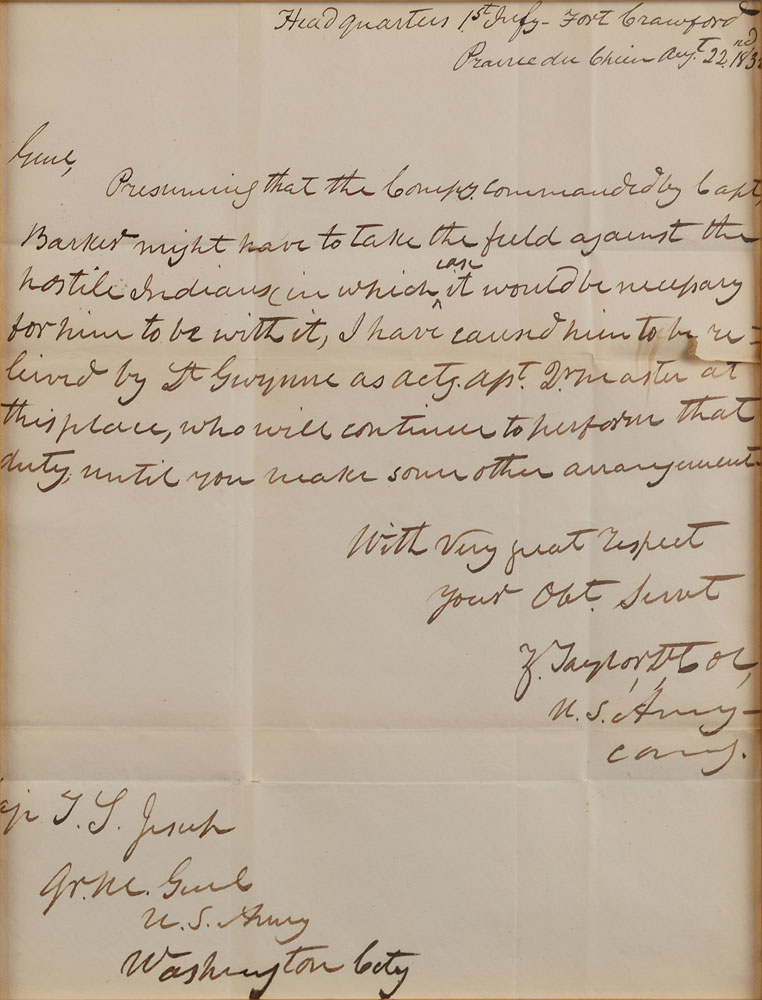 Headquarters 1st Infy - Fort Crawford
Prairie du Chien Augt. 22nd 183
Genl,
Presuming that the Compy. commanded by Capt,
Barker might have to take the field against the
hostile Indians, (in which case it would be necessary
for him to be with it, I have caused him to be re=
leived by Lt Gwynne as actg. asst. Qr. master at
this place, who will continue to perform that
duty, until you make some other arrangement
With very great respect
your Obt. Servt
Z. Taylor, Lt Col,
U. S. Army -
comg.
T. S. Jesup
Qr. M. Genl
U. S. Army
Washington City